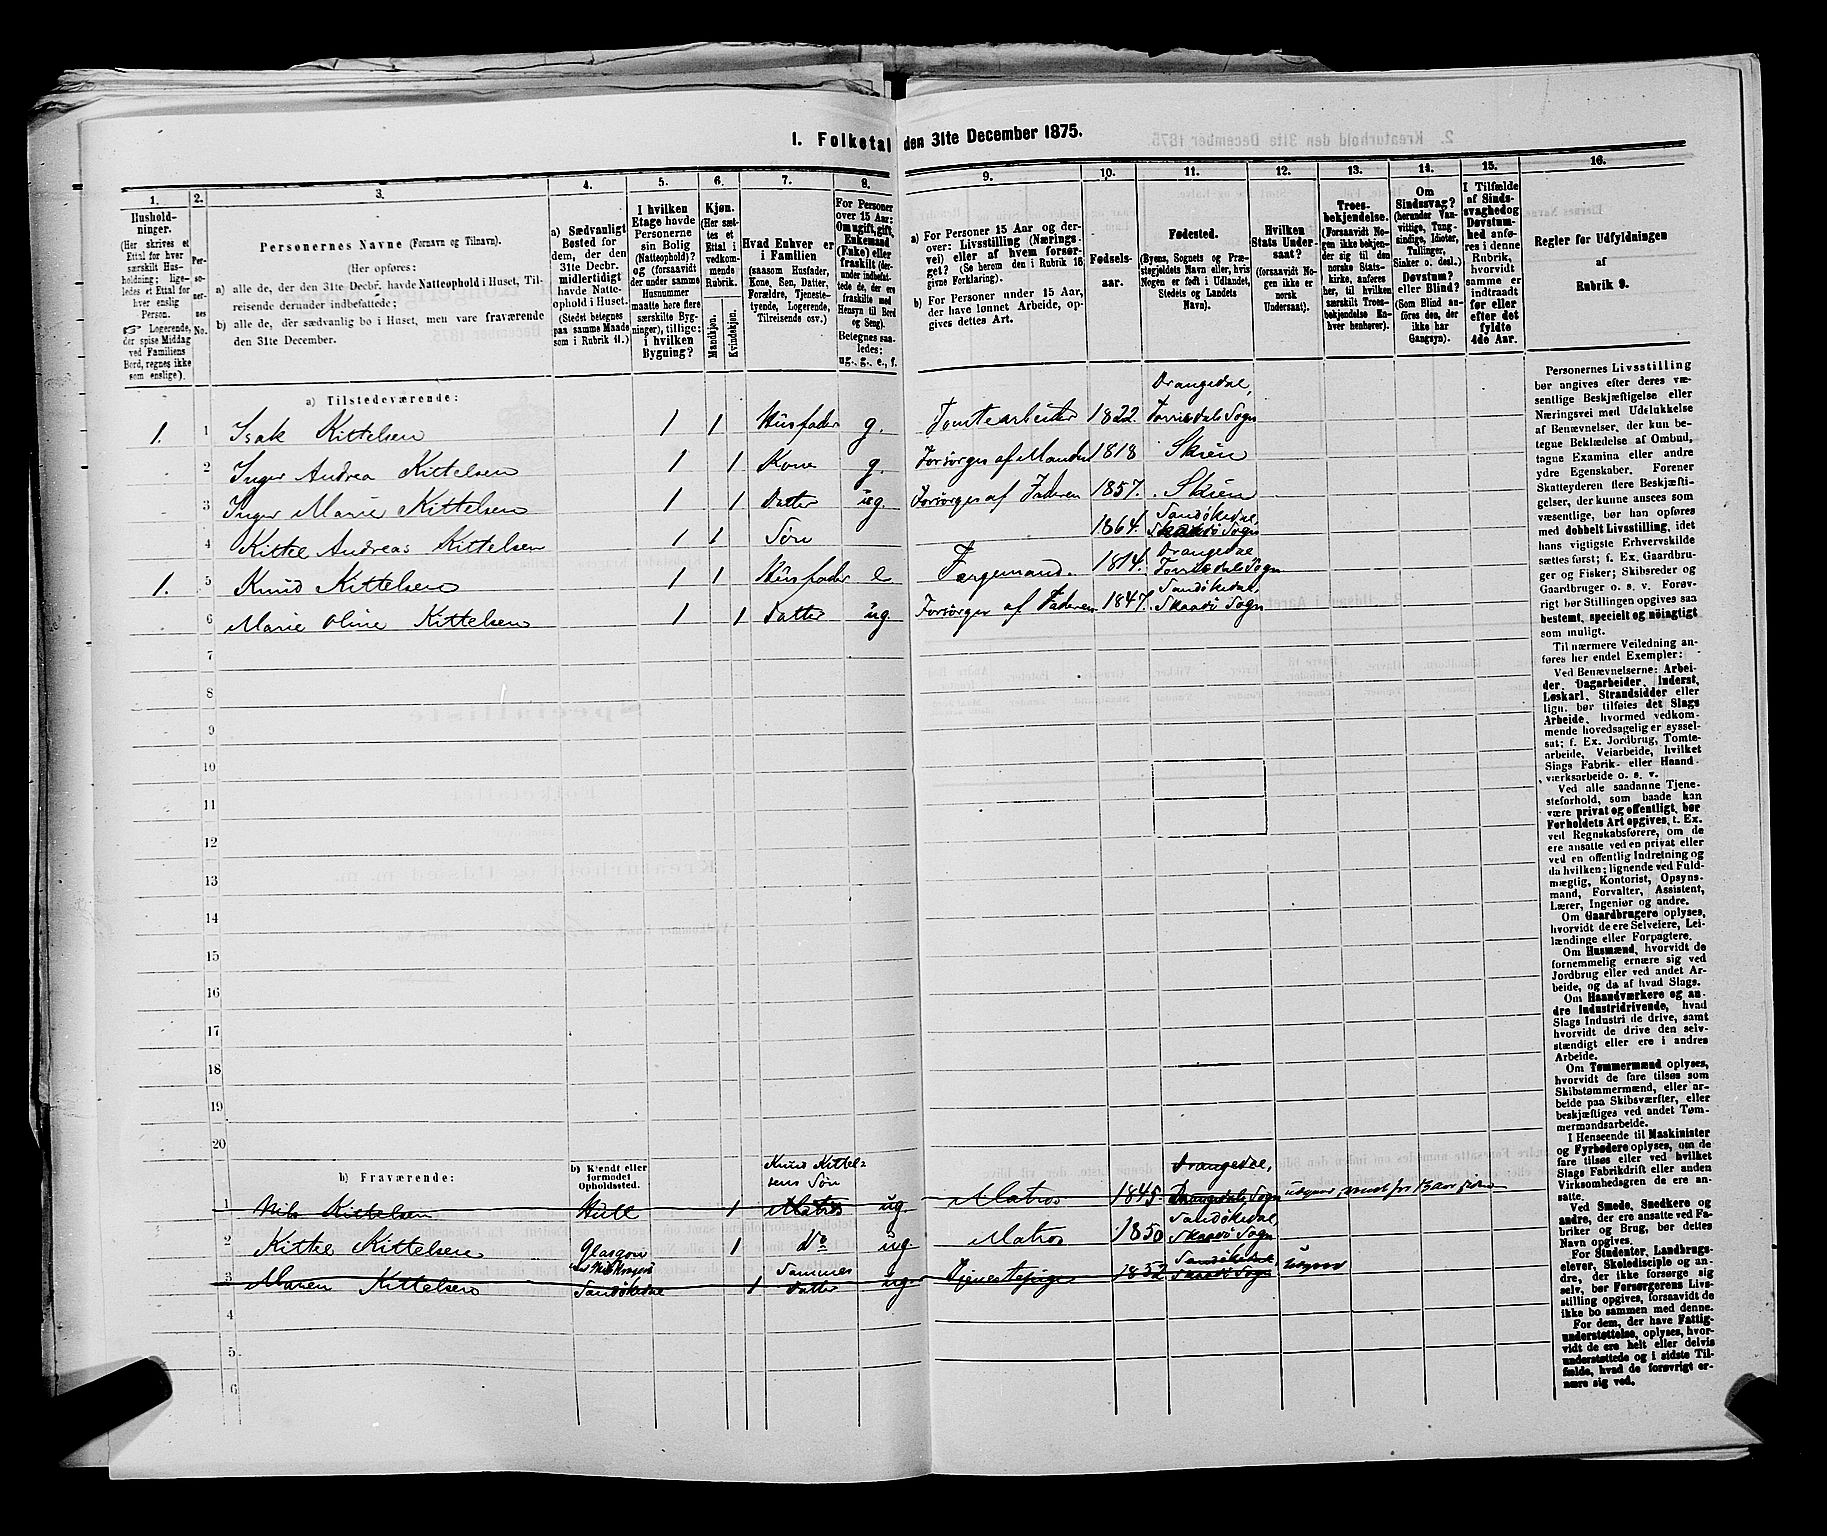 1. Folketal den 31te December 1875.
1. 2. 3. 4. 5. 6. 7. 8. 9. 10. 11. 12. 13. 14. 15. 16.
Hushold-
ninger.
(Her skrives et
Ettal for hver
særskilt Hus-
holdning; lige-
ledes et Ettal for
hver enslig
Person.
☞ Logerende,
der spise Middag
ved Familiens
Bord, regnes ikke
som enslige).
Per-
so-
ner-
nes
No.
Personernes Navne (Fornavn og Tilnavn).
(Her opføres:
a) alle de, der den 31te Decbr. havde Natteophold i Huset, Til-
reisende derunder indbefattede;
b) alle de, der sædvanlig bo i Huset, men vare fraværende
den 31te December.
a) Sædvanligt
Bosted for
dem, der den
31te Decbr.
midlertidigt
havde Natte-
ophold i Huset.
(Stedet betegnes
paa samme Maade
som i Rubrik 11.)
I hvilken
Etage havde
Personerne
sin Bolig
(Natteophold)?
og (forsaavidt
der under samme
Husnummer
maatte høre flere
særskilte Byg-
ninger), tillige:
i hvilken
Bygning?
Kjøn.
(Her sæt-
tes et
Ettal i
vedkom-
mende
Rubrik.
Mandkjøn.
Kvindekjøn.
Hvad Enhver er
i Familien
(saasom Husfader,
Kone, Søn, Datter,
Forældre, Tjeneste-
tyende, Logerende,
Tilreisende osv.)
For Personer
over 15 Aar:
Om ugift, gift,
Enkemand
(Enke) eller
fraskilt (der-
under indbefat-
tede de, der ere
fraskilte med
Hensyn til Bord
og Seng).
Betegnes saa-
ledes:
ug., g., e., f.
a) For Personer 15 Aar og der-
over: Livsstilling (Nærings-
vei) eller af hvem forsør-
get? (Se herom den i Rubrik 16
givne Forklaring).
b) For Personer under 15 Aar,
der have lønnet Arbeide, op-
gives dettes Art.
Fødsels-
aar.
Fødested.
(Byens, Sognets og Præ-
stegjeldets Navn eller, hvis
Nogen er født i Udlandet,
Stedets og Landets
Navn).
Hvilken
Stats Under-
saat?
(forsaavidt No-
gen ikke er
norsk
Undersaat).
Troes-
bekjendelse.
(Forsaavidt No-
gen ikke bekjen-
der sig til den
norske Stats-
kirke, anføres
her, til hvilken
særskilt Troes-
bekjendelse En-
hver henhører).
Om
Sindssvag?
(herunder Van-
vittige, Tung-
sindige, Idioter,
Tullinger,
Sinker o. desl.)
Døvstum?
eller Blind?
(Som Blind an-
føres den, der
ikke har
Gangsyn).
I Tilfælde
af Sinds-
svaghed og
Døvstum-
hed anfø-
res i denne
Rubrik,
hvorvidt
samme er
indtraadt
før eller
efter det
fyldte
4de Aar.
Regler for Udfyldningen
af
Rubrik 9.
a) Tilstedeværende:
Drangedal,
1. 1 Isak Kittelsen 1 1 Husfader g. Tomtearbeider 1822. Torrisdals Sogn
2 Inger Andrea Kittelsen 1 1 Kone g. Forsørges af Manden 1818 Skien
3 Inger Marie Kittelsen 1 1 Datter ug. Forsørges af Faderen 1857. Skien
Sandøkedal,
4 Kittel Andreas Kittelsen 1 1 Søn 1864. Skaadø Sogn
Drangedal
1. 5 Knud Kittelsen 1 1 Husfader e Færgemand. 1814. Torrisdals Sogn
Sandøkedal,
6 Marie Oline Kittelsen 1 1 Datter ug. Forsørges af Faderen 1847. Skaadø Sogn
7
8
9
10
11
12
13
14
15
16
17
18
19
20
b) Fraværende:
b) Kjendt eller
formodet
Opholdssted.
Knud Kittel-
sens Søn
Drangedal,
1 Nils Kittelsen Hull 1 Matros ug. Matros 1845. Drangedals Sogn
Sandøkedal,
2 Kittel Kittelsen Glasgow 1 Do ug. Matros 1850 Skaadø Sogn
Sammes Sandøkedal
3 Maren Kittelsen Sandøkedal 1 Datter ug. Tjenestepige 1852 Skaadø Sogn udgaar
4
5
6
Personernes Livsstilling
bør angives efter deres væ-
sentlige Beskjæftigelse eller
Næringsvei med Udelukkelse
af Benævnelser, der kun be-
tegne Beklædelse af Ombud,
tagne Examina eller andre
ydre Egenskaber. Forener
Skatteyderen flere Beskjæfti-
gelser, der kunne ansees som
væsentlige, bør han opføres
med dobbelt Livsstilling, idet
hans vigtigste Erhvervskilde
sættes først; f. Ex. Gaardbru-
ger og Fisker; Skibsreder og
Gaardbruger o. s. v. Forøv-
rigt bør Stillingen opgives saa
bestemt, specielt og nöiagtigt
som muligt.
Til nærmere Veiledning an-
føres her endel Exempler:
Ved Benævnelserne: Arbei-
der, Dagarbeider, Inderst,
Løskarl, Strandsidder eller
lign. bør tilføies det Slags
Arbeide, hvormed vedkom-
mende hovedsagelig er syssel-
sat; f. Ex. Jordbrug, Tomte-
arbeide, Veiarbeide, hvilket
Slags Fabrik- eller Haand-
værksarbeide o. s. v.
Ved alle saadanne Tjene-
steforhold, som baade kan
være privat og offentligt, bør
Forholdets Art opgives, t. Ex.
ved Regnskabsførere, om de
ere ansatte ved en privat eller
ved en offentlig Indretning og
da hvilken; lignende ved Fuld-
mægtig, Kontorist, Opsyns-
mand, Forvalter, Assistent,
Lærer, Ingeniør og andre.
Om Gaardbrugere oplyses,
hvorvidt de ere Selveiere, Lei-
lændinge eller Forpagtere.
Om Husmænd, hvorvidt de
fornemmelig ernære sig ved
Jordbrug eller ved andet Ar-
beide, og da af hvad Slags.
Om Haandværkere og an-
dre Industridrivende, hvad
Slags Industri de drive, samt
hvorvidt de drive den selv-
stændigt eller ere i andres
Arbeide.
Om Tømmermænd oplyses,
hvorvidt de fare tilsøs som
Skibstømmermænd, eller ar-
beide paa Skibsværfter, eller
beskjæftiges ved andet Tøm-
mermandsarbeide.
I Henseende til Maskinister
og Fyrbødere oplyses, om de
fare tilsøs eller ved hvilket
Slags Fabrikdrift eller anden
Virksomhedsgren de ere an-
satte.
Ved Smede, Snedkere og
andre, der ere ansatte ved Fa-
briker og Brug, bør dettes
Navn opgives.
For Studenter, Landbrugs-
elever, Skoledisciple og an-
dre, der ikke forsørge sig
selv, bør Forsørgerens Livs-
stilling opgives, forsaavidt de
ikke bo sammen med denne.
For dem, der have Fattig-
understøttelse, oplyses, hvor-
vidt de ere helt eller delvis
understøttede og i sidste Til-
fælde, hvad de forøvrigt er-
nære sig ved.